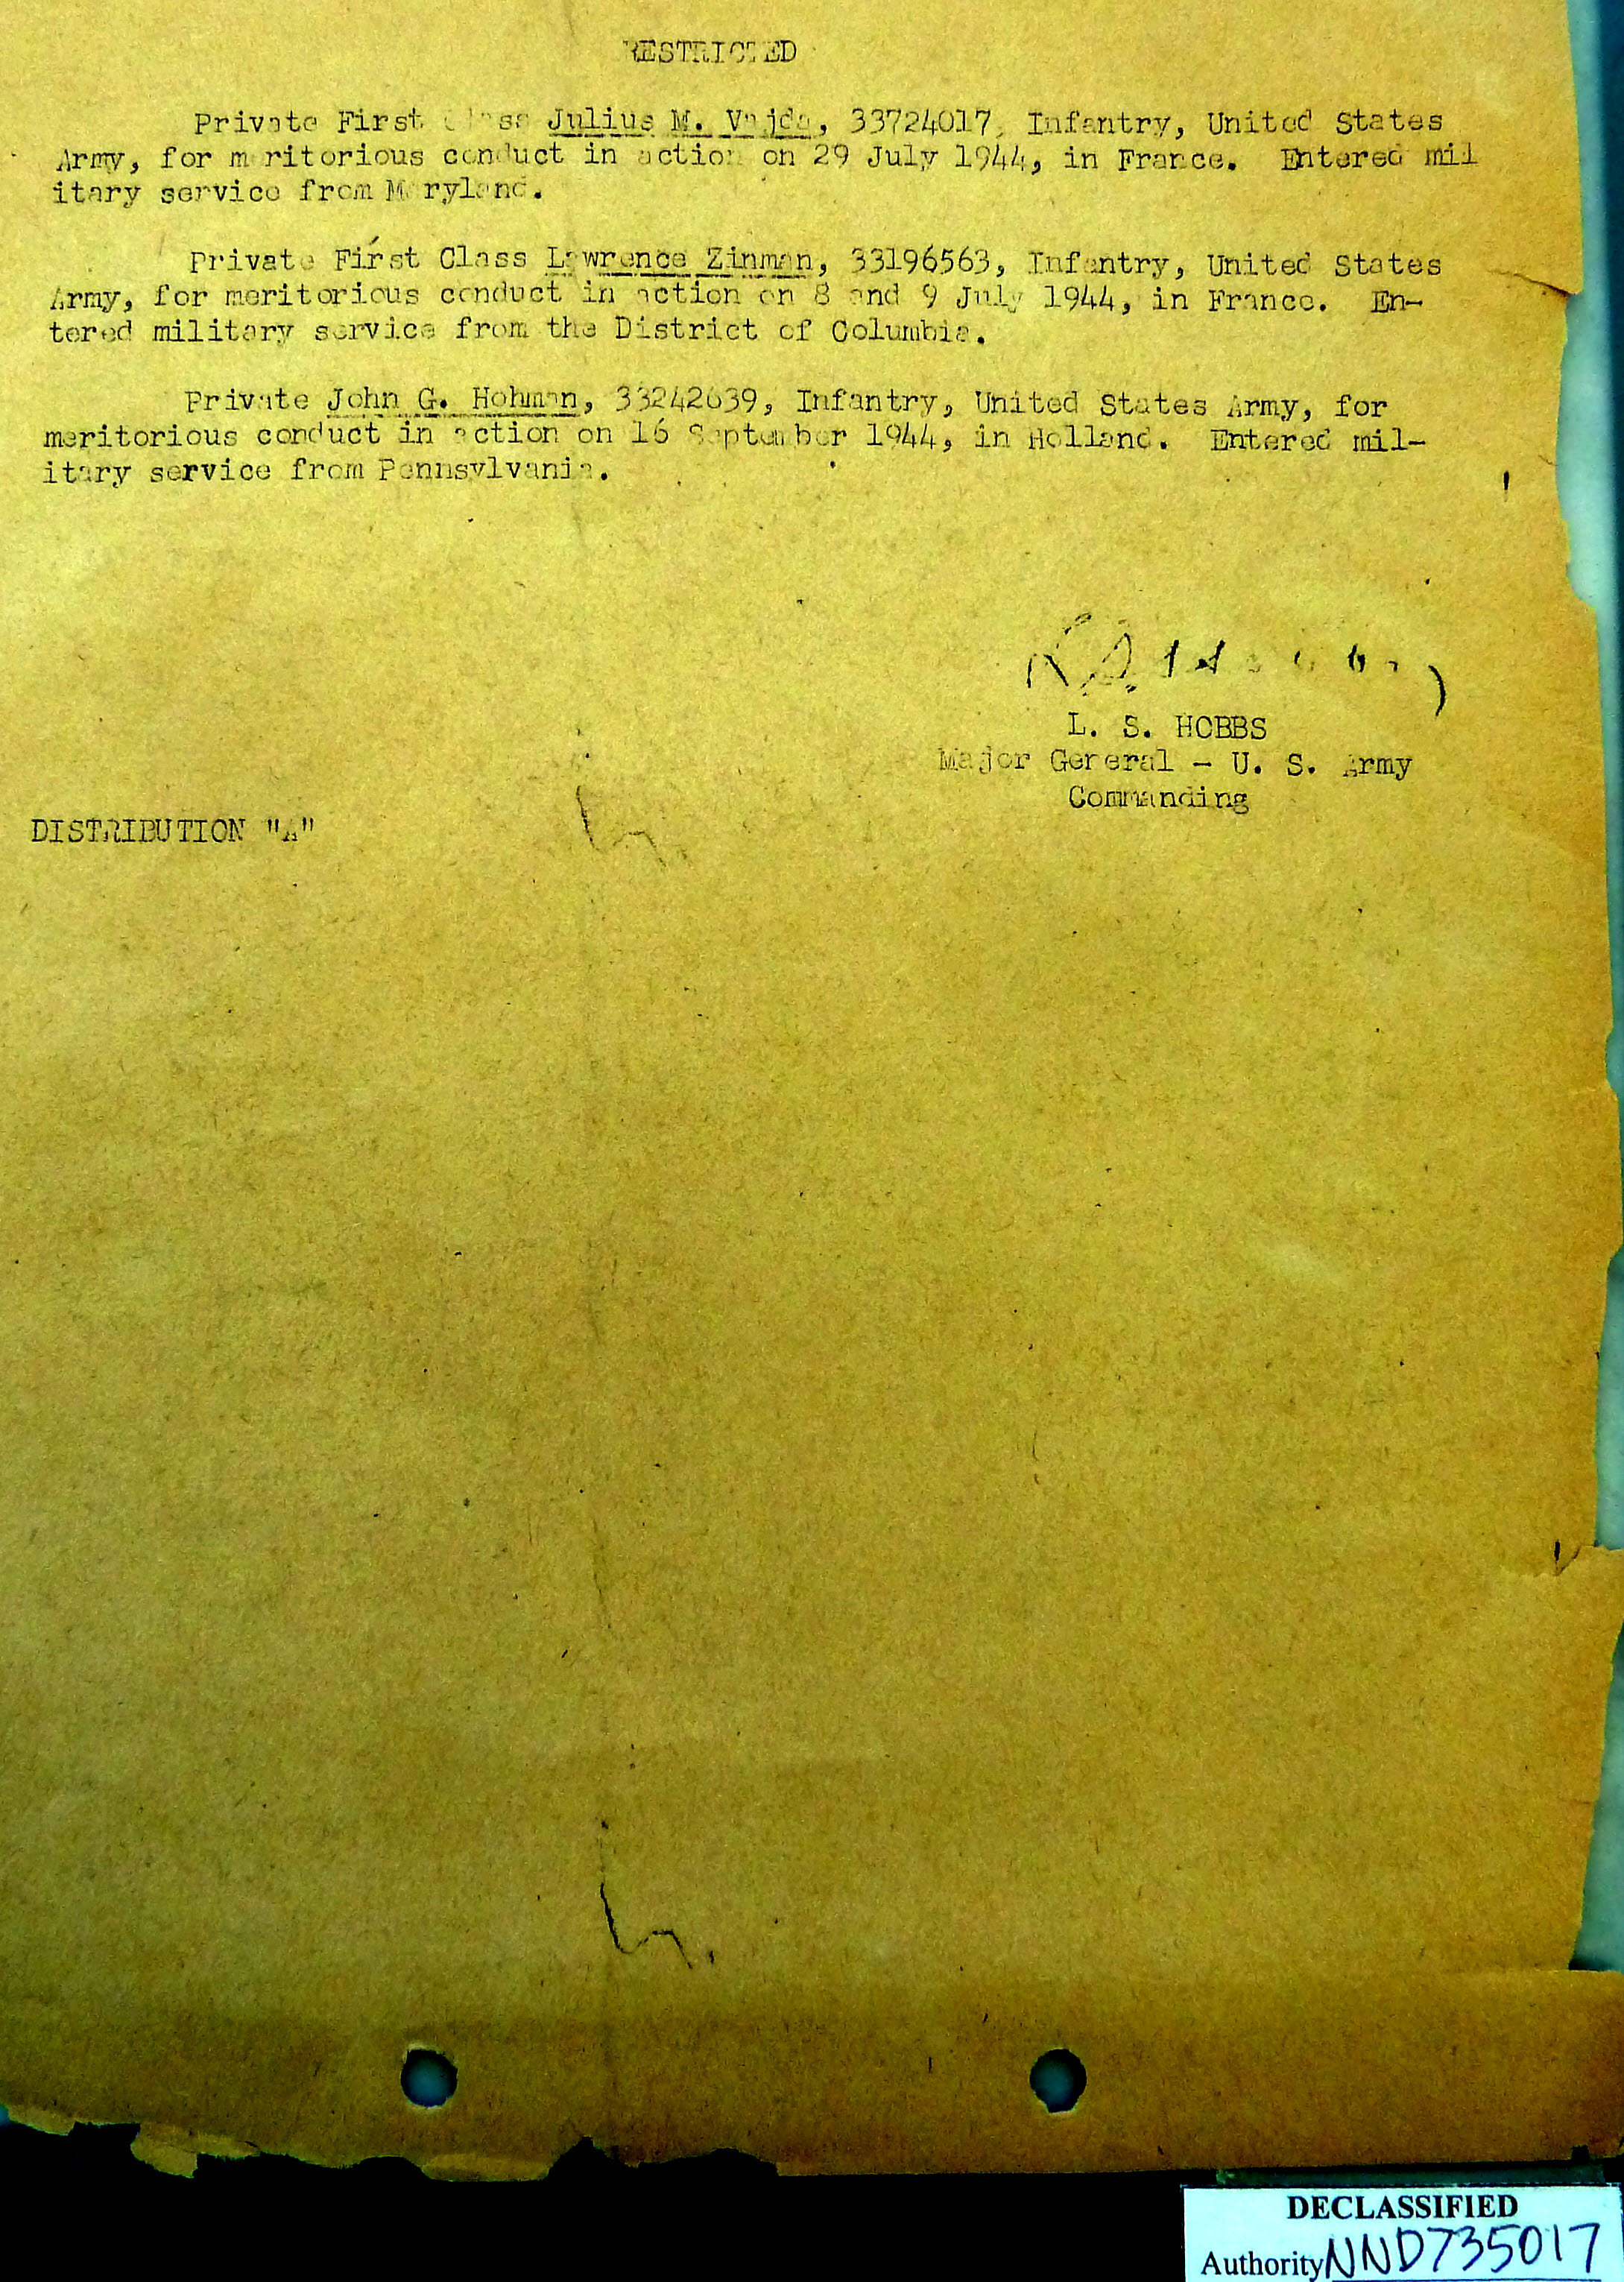 RESTRICTED
Private First Class Julius M. Vajda, 33724017, Infantry, United States
Army, for meritorious conduct in action on 29 July 1944, in France. Entered mil
itary service from Maryland.
Private First Class Lawrence Zinman, 33196563, Infantry, United States
Army, for meritorious conduct in action on 8 and 9 July 1944, in France. En-
tered military service from the District of Columbia.
Private John G. Hohman, 33242639, Infantry, United States Army, for
meritorious conduct in action on 16 September 1944, in Holland. Entered mil-
itary service from Pennsylvania.
L. S. HOBBS
Major General - U. S. Army
Commanding
DISTRIBUTION "A"
DECLASSIFIED
Authority NND735017